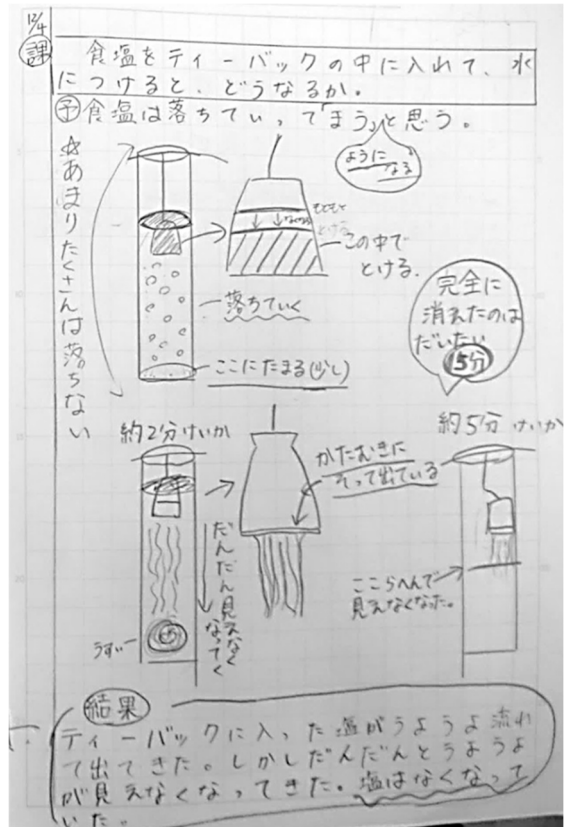 12/4
課
食塩をティーバックの中に入れて、水
につけると、どうなるか。
予 食塩は落ちていって「まう」と思う。
ように
なる
☆あまりたくさんは落ちない
もともと
とける
この中で
とける.
落ちていく
ここにたまる(少し)
完全に
消えたのは
だいたい
15分
約2分けいか
かたむきに
そって出ている
約5分けいか
だんだん見えなく
なってく
うすい
ここらへんで
見えなくなった。
結果
ティーバックに入った塩がうようよ流れ
て出てきた。しかしだんだんとうようよ
が見えなくなってきた。塩はなくなって
いた。